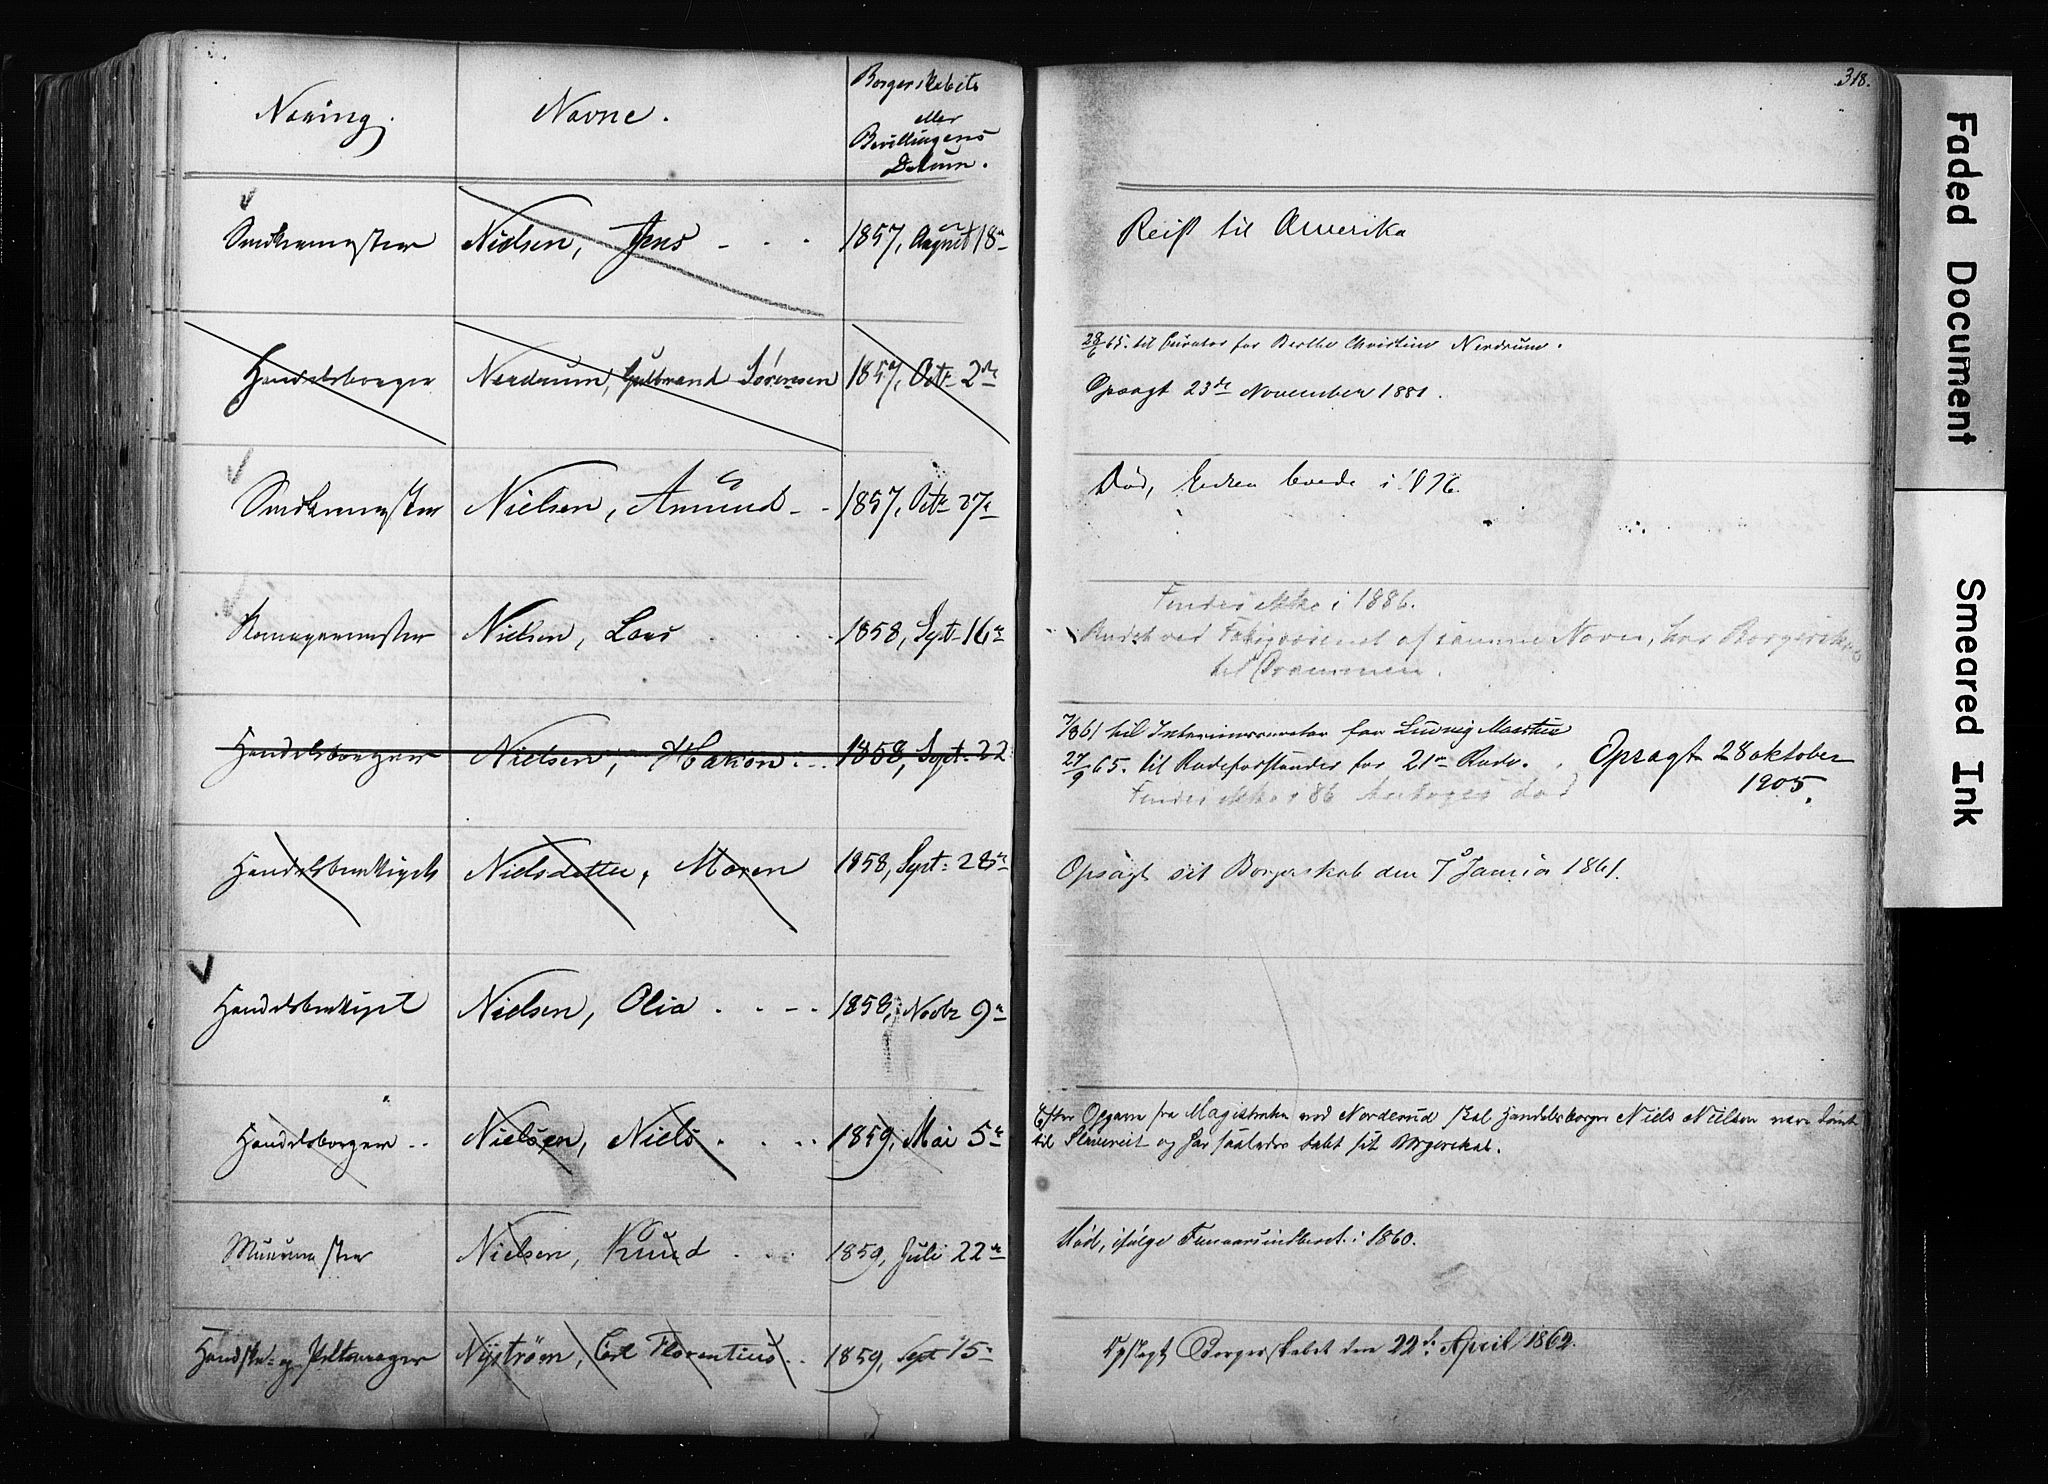 318.
Næring. Navne. Borgerskabets
eller
Bevillingens
Datum.
Snedkermester Nielsen, Jens - - - 1857, August 18de Reist til Amerika
Handelsborger Nordrum, Gulbrand Sörensen 1857, Octr 2de
28/6 65. til Curator for Berthe Christine Nordrum.
Opsagt 23de November 1881.
Snedkermester Nielsen, Amund - - 1857, Octr 27de Död, Enken levede i 1876.
Nielsen, Lars 1858, Sept. 16de
Findes ikke i 1886.
af samme Navn, har Borgerskab
til Drammen.
Handelsborger Nielsen, Hakon 1858, Sept. 22
7/8 61 til Interimscurator for Ludvig
27/9 65. til Rodeforstander for 21de Rode. Opsagt 28 oktober
1905.
Findes ikke i 86 Antages död
Handelsberettiget Nielsdatter, Maren 1858, Sept. 28de Opsagt sit Borgerskab den 7de Januar 1861.
Handelsberettiget Nielsen, Olia - - - - 1858, Novbr 9de
Handelsborger - - Nielsen, Niels - - - - 1859, Mai 5te
Efter Opgave fra Magistraten ved skal Handelsborger Niels Nielsen være dömt
til Slaveriet og har saaledes tabt sit Borgerskab.
Muurmester Nielsen, Knud - - - 1859, Juli 22de Död, ifölge i 1860.
Handske- og Peltsmager Nyström, Carl Florentius - - 1859, Sept 15de Opsagt Borgerskabet den 22de April 1862.
Faded Document
Smeared Ink